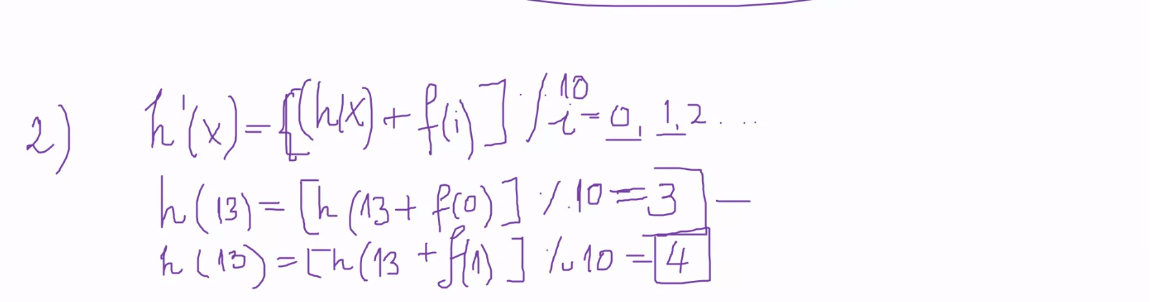 2) h'(x) = [(h(x) + f(i)] % 10 i = 0, 1, 2 ...
h(13) = [h(13 + f(0)] % 10 = 3 —
h(13) = [h(13 + f(1)] % 10 = 4